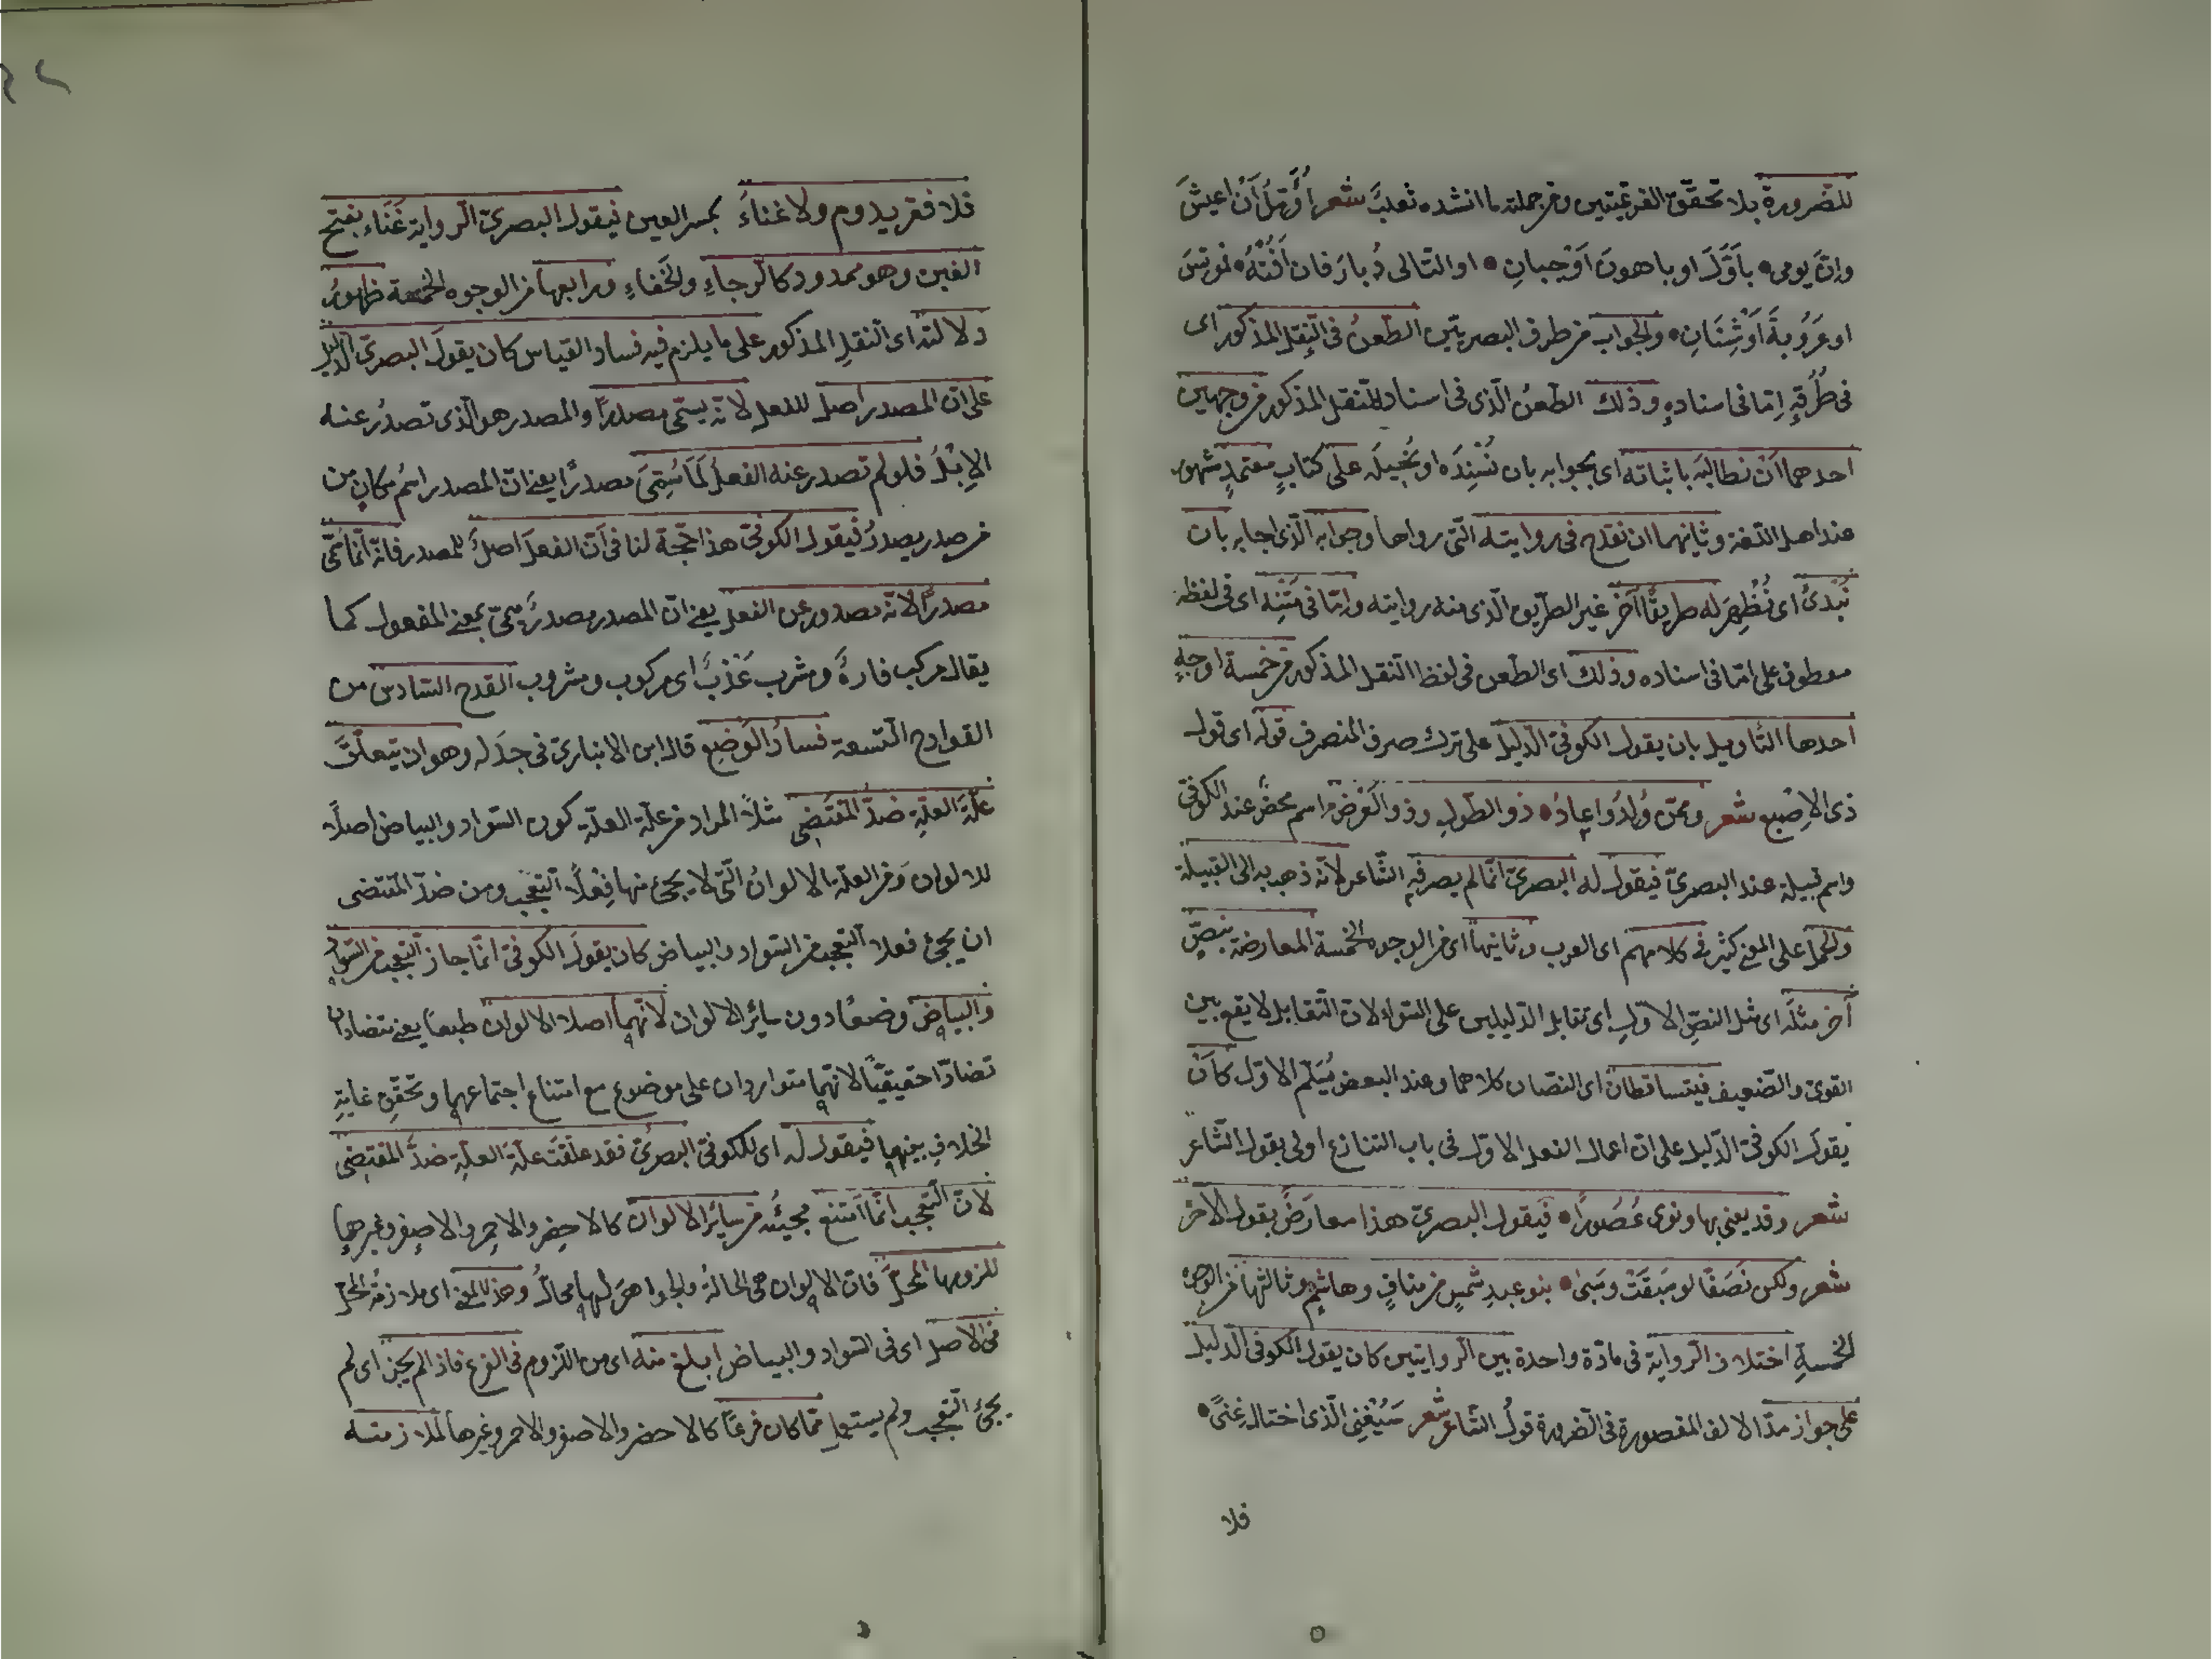 للضرورة بلا تحقّق الفرعيتين ومن جملته ما انشده ثعلب شعر اُؤَمِّلُ أَنْ اعيشَ
وانّ يومى باَوَّلَ او باهونَ اَوْجبارِ او التالى دُبارَ فان اَفُتْهُ فمونسَ
او عَرُوبةَ اَوْشِيَارِ والجواب من طرف البصريّين الطّعنُ فى النّقل المذكور اى
فى طُرُقِهِ اِمّا فى اسنادهِ وذلك الطّعنُ الّذى فى اسناد للنقل المذكور من وجهين
احدهما اَنْ نطالبَه باثباته اى بجوابه بان نُسْنِدَه او نُحيلَه على كتابٍ معتمدٍ مشهور
عند اهل اللّغة وثانيهما ان نقدح فى روايته الّتى رواها وجوابه الّذى اجابه بان
نُبْدئَ اى نُظْهِرَ له طريقًا آخر غير الطّريق الّذى منه روايته وامّا فى مَتْنِه اى فى لفظه
معطوف على امّا فى اسناده وذلك اى الطّعن فى لفظ النّقل المذكور من خمسة اوجهٍ
احدها التأويل بان يقول الكوفىّ الدّليل على ترك صرف المنصرف قوله اى قول
ذى الاِصْبع شعر وممّن وُلِدُوا عامِرُ ذو الطّولِ وذو العَرْضِ اسم محضٌ عند الكوفىّ
واسم قبيلة عند البصرىّ فيقول له البصرىّ انّما لم يصرفه الشّاعر لانّه ذهب به الى القبيلة
والحمل على المعنى كثير فى كلامهم اى العرب وثانيها اى من الوجوه الخمسة المعارضة بنصٍّ
آخر مثله اى مثل النصّ الاوّلِ اى تقابل الدّليلين على السّواء لانّ التّقابل لا يقع بين
القوىّ والضّعيف فيتساقطان اى النصّان كلاهما وعند البعض يُسَلَّم الاوّل كَأَنْ
يقولَ الكوفىّ الدّليل على انّ اعمال الفعل الاوّل فى باب التنازع اولى بقول الشّاعر
شعر وقد يغنى بها ونرى عُصُورًا فيقول البصرىّ هذا معارَضٌ بقول الآخر
شعر ولكن نَصَفًا لو سَبَبْتُ وسَبّنى بنو عبدِ شمسٍ من منافٍ وهاشمٍ وثالثها من الوجوه
الخمسةِ اختلاف الرّواية فى مادّة واحدة بين الرّوايتين كان يقول الكوفى الدّليل
على جواز مدّ الالف المقصورة فى الضّرورة قولُ الشّاعر شعر سَيُغْنِينى الّذى اغناك عنّى
فلا
فلا فقر يدوم ولا غناءُ بكسر الغين فيقول البصرىّ الرّواية غَنَاء بفتح
الغين وهو ممدود كالرّجاءِ والخَفاءِ ورابعها من الوجوه الخمسة ظهورُ
دلالته اى النّقلِ المذكور على ما يلزم فيه فساد القياس كان يقولَ البصرىّ الدّليل
على انّ المصدر اصل للفعل لانّه يسمّى مصدرًا والمصدر هو الّذى تصدُر عنه
الاِبْلُ فلو لم تصدر عنه الفعلُ لَمَا سُمِّىَ مصدرًا يعنى انّ المصدر اسْم مكانٍ من
من صدر يصدرُ فيقول الكوفىّ هذا حجّة لنا فى اَنّ الفعلَ اصلٌ للمصدر فانّه انّما سمّى
مصدرًا لانّه مصدور عن الفعل يعنى انّ المصدر مصدرٌ ميمىّ بمعنى المفعول كما
يقال مركب فارهٌ ومشرب عَذْبٌ اى مركوب ومشروب القدح السّادس من
القوادح التّسعة فسادُ الوَضْعِ قال ابن الانبارىّ فى جدَله وهو ان يتعلّقَ
علّة العلّةِ ضدَّ المُقتَضى مثلًا المراد من علّة العلّة كون السّواد والبياض اصلًا
للالوان ومن العلّة الالوانُ الّتى لا يجئ منها فِعْلاَ التّعجّب ومن ضدّ المقتضى
ان يجئ فعلا التّعجّب من السّواد والبياض كان يقولَ الكوفىّ انّما جاز التّعجّب من السّواد
والبياض وضعًا دون سائر الالوان لانّهما اصلا الالوان طبعًا يعنى متضادّان
تضادًّا حقيقيًّا لانّهما متواردان على موضوع مع امتناع اجتماعهما وتحقّقِ غايةِ
الخلافِ بينهما فيقول له اى للكوفىّ البصرىُّ فقد علّقتَ علّة العلّةِ ضدَّ المقتضى
لانّ التّعجّب انّما امتنع مجيئُه من سائر الالوان كالاخضر والاحمر والاصفر وغيرها
للزومها المحلَّ فانّ الالوان هى الحالّةُ والجواهرَ لها محالٌّ وهذا المعنى اى ملازمةُ المحلّ
فى الاصل اى فى السّواد والبياض ابلغ منه اى من اللّزوم فى الفرع فاذا لم يجز اى لم
يجئ التّعجّب ولم يستعمل ممّا كان فرعًا كالاخضر والاصفر والاحمر وغيرها لملازمته